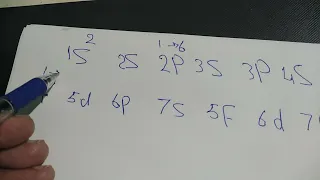 1S² 2S 2P¹⁻⁶ 3S 3P 4S
5d 6p 7S 5f 6d 7